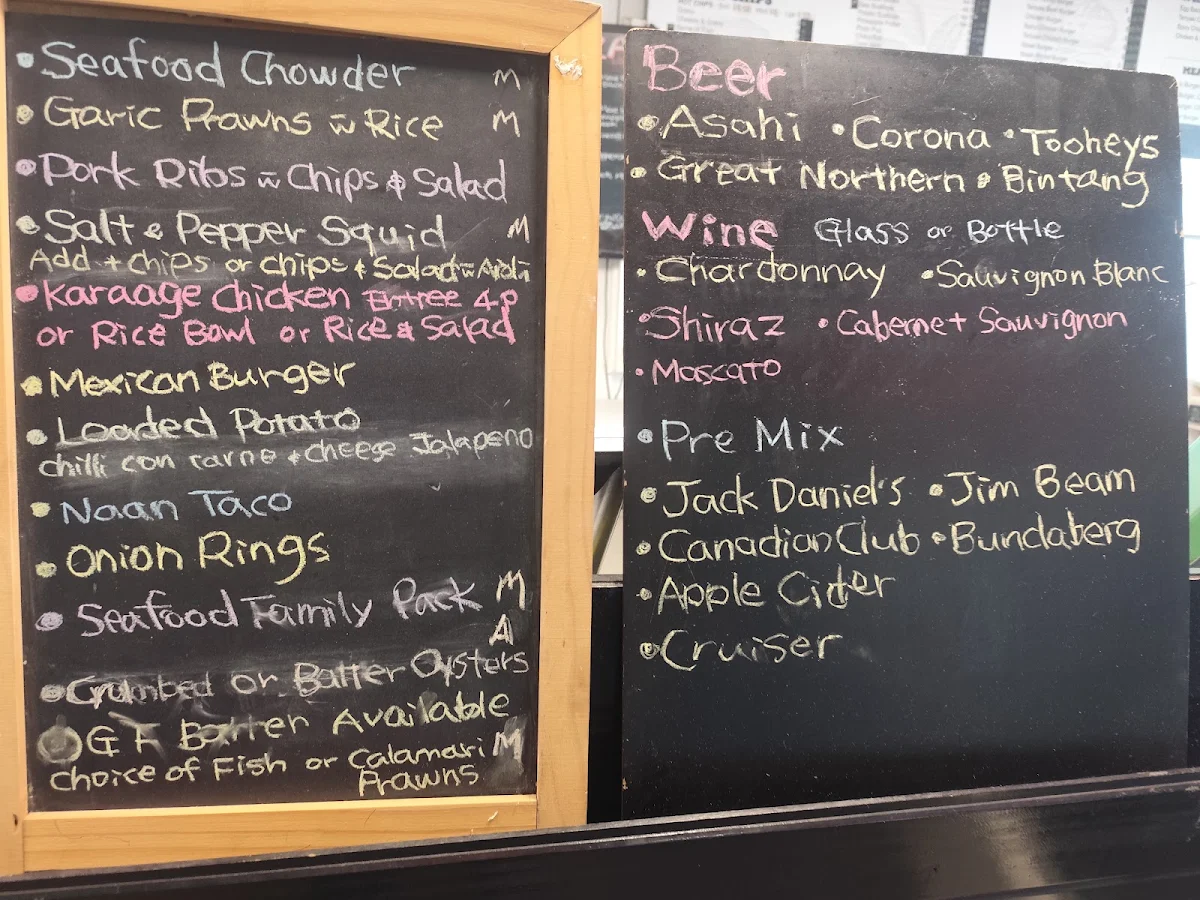 • Seafood Chowder M
• Garic Prawns w Rice M
• Pork Ribs w Chips & Salad
• Salt & Pepper Squid M
Add + chips or chips & Salad w Aioli
• Karaage Chicken Entree 4p
or Rice Bowl or Rice & Salad
• Mexican Burger
• Loaded Potato
chilli con carne + cheese Jalapeno
• Naan Taco
• Onion Rings
• Seafood Family Pack M
A
• Crumbed or Batter Oysters
GF Batter Available
choice of Fish or Calamari M
Prawns
Beer
• Asahi • Corona • Tooheys
• Great Northern • Bintang
Wine Glass or Bottle
• Chardonnay • Sauvignon Blanc
• Shiraz • Cabernet Sauvignon
• Moscato
• Pre Mix
• Jack Daniel's • Jim Beam
• Canadian Club • Bundaberg
• Apple Cider
• Cruiser